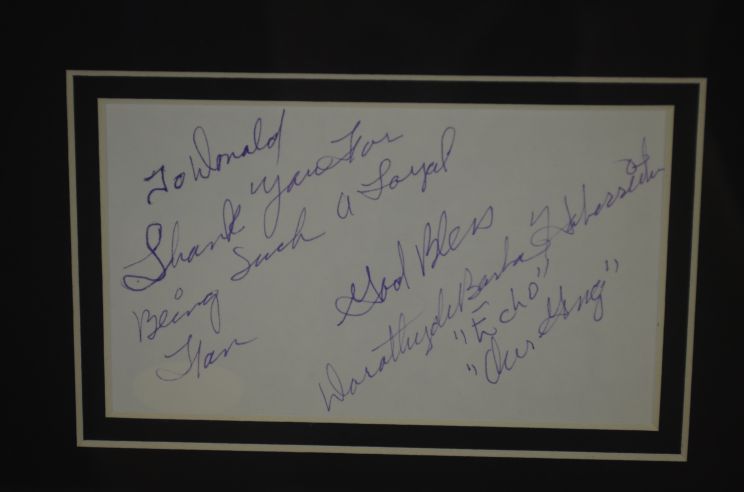 To Donald
Thank You For
Being Such A Loyal
Fan
God Bless
Dorothy DeBorba
"Echo"
"Our Gang"